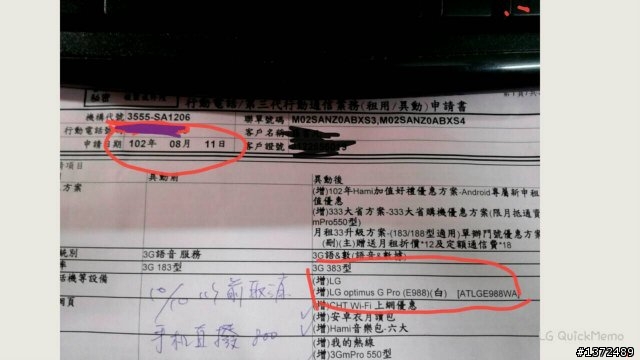 行動電話/第三代行動通信業務(租用/異動)申請書
機構代號 3555-SA1206
聯單號碼 M02SANZ0ABXS3,M02SANZ0ABXS4
行動電話
客戶名稱
申請日期 102年 08月 11日
客戶證號
項目
異動前
異動後
方案
(增)102年Hami加值好禮優惠方案-Android專屬新申租
值優惠
(增)333大省方案-333大省購機優惠方案(限月抵通費
mPro550型)
月租33升級方案-(183/188型適用)單辦門號優惠方案
(刪)(主)贈送月租折價*12及定額通信費*18
統別
3G語音 服務
3G語&數(語音&數據)
率
3G 183型
3G 383型
話機等設備
(增)LG
(增)LG optimus G Pro (E988)(白) [ATLGE988WA]
頁
(增)CHT Wi-Fi 上網優惠
(增)安卓衣月讀包
(增)Hami音樂包-六大
(增)我的熱線
(增)3GmPro 550型
10/10 前取消
手机直撥 800
LG QuickMemo
#1372489